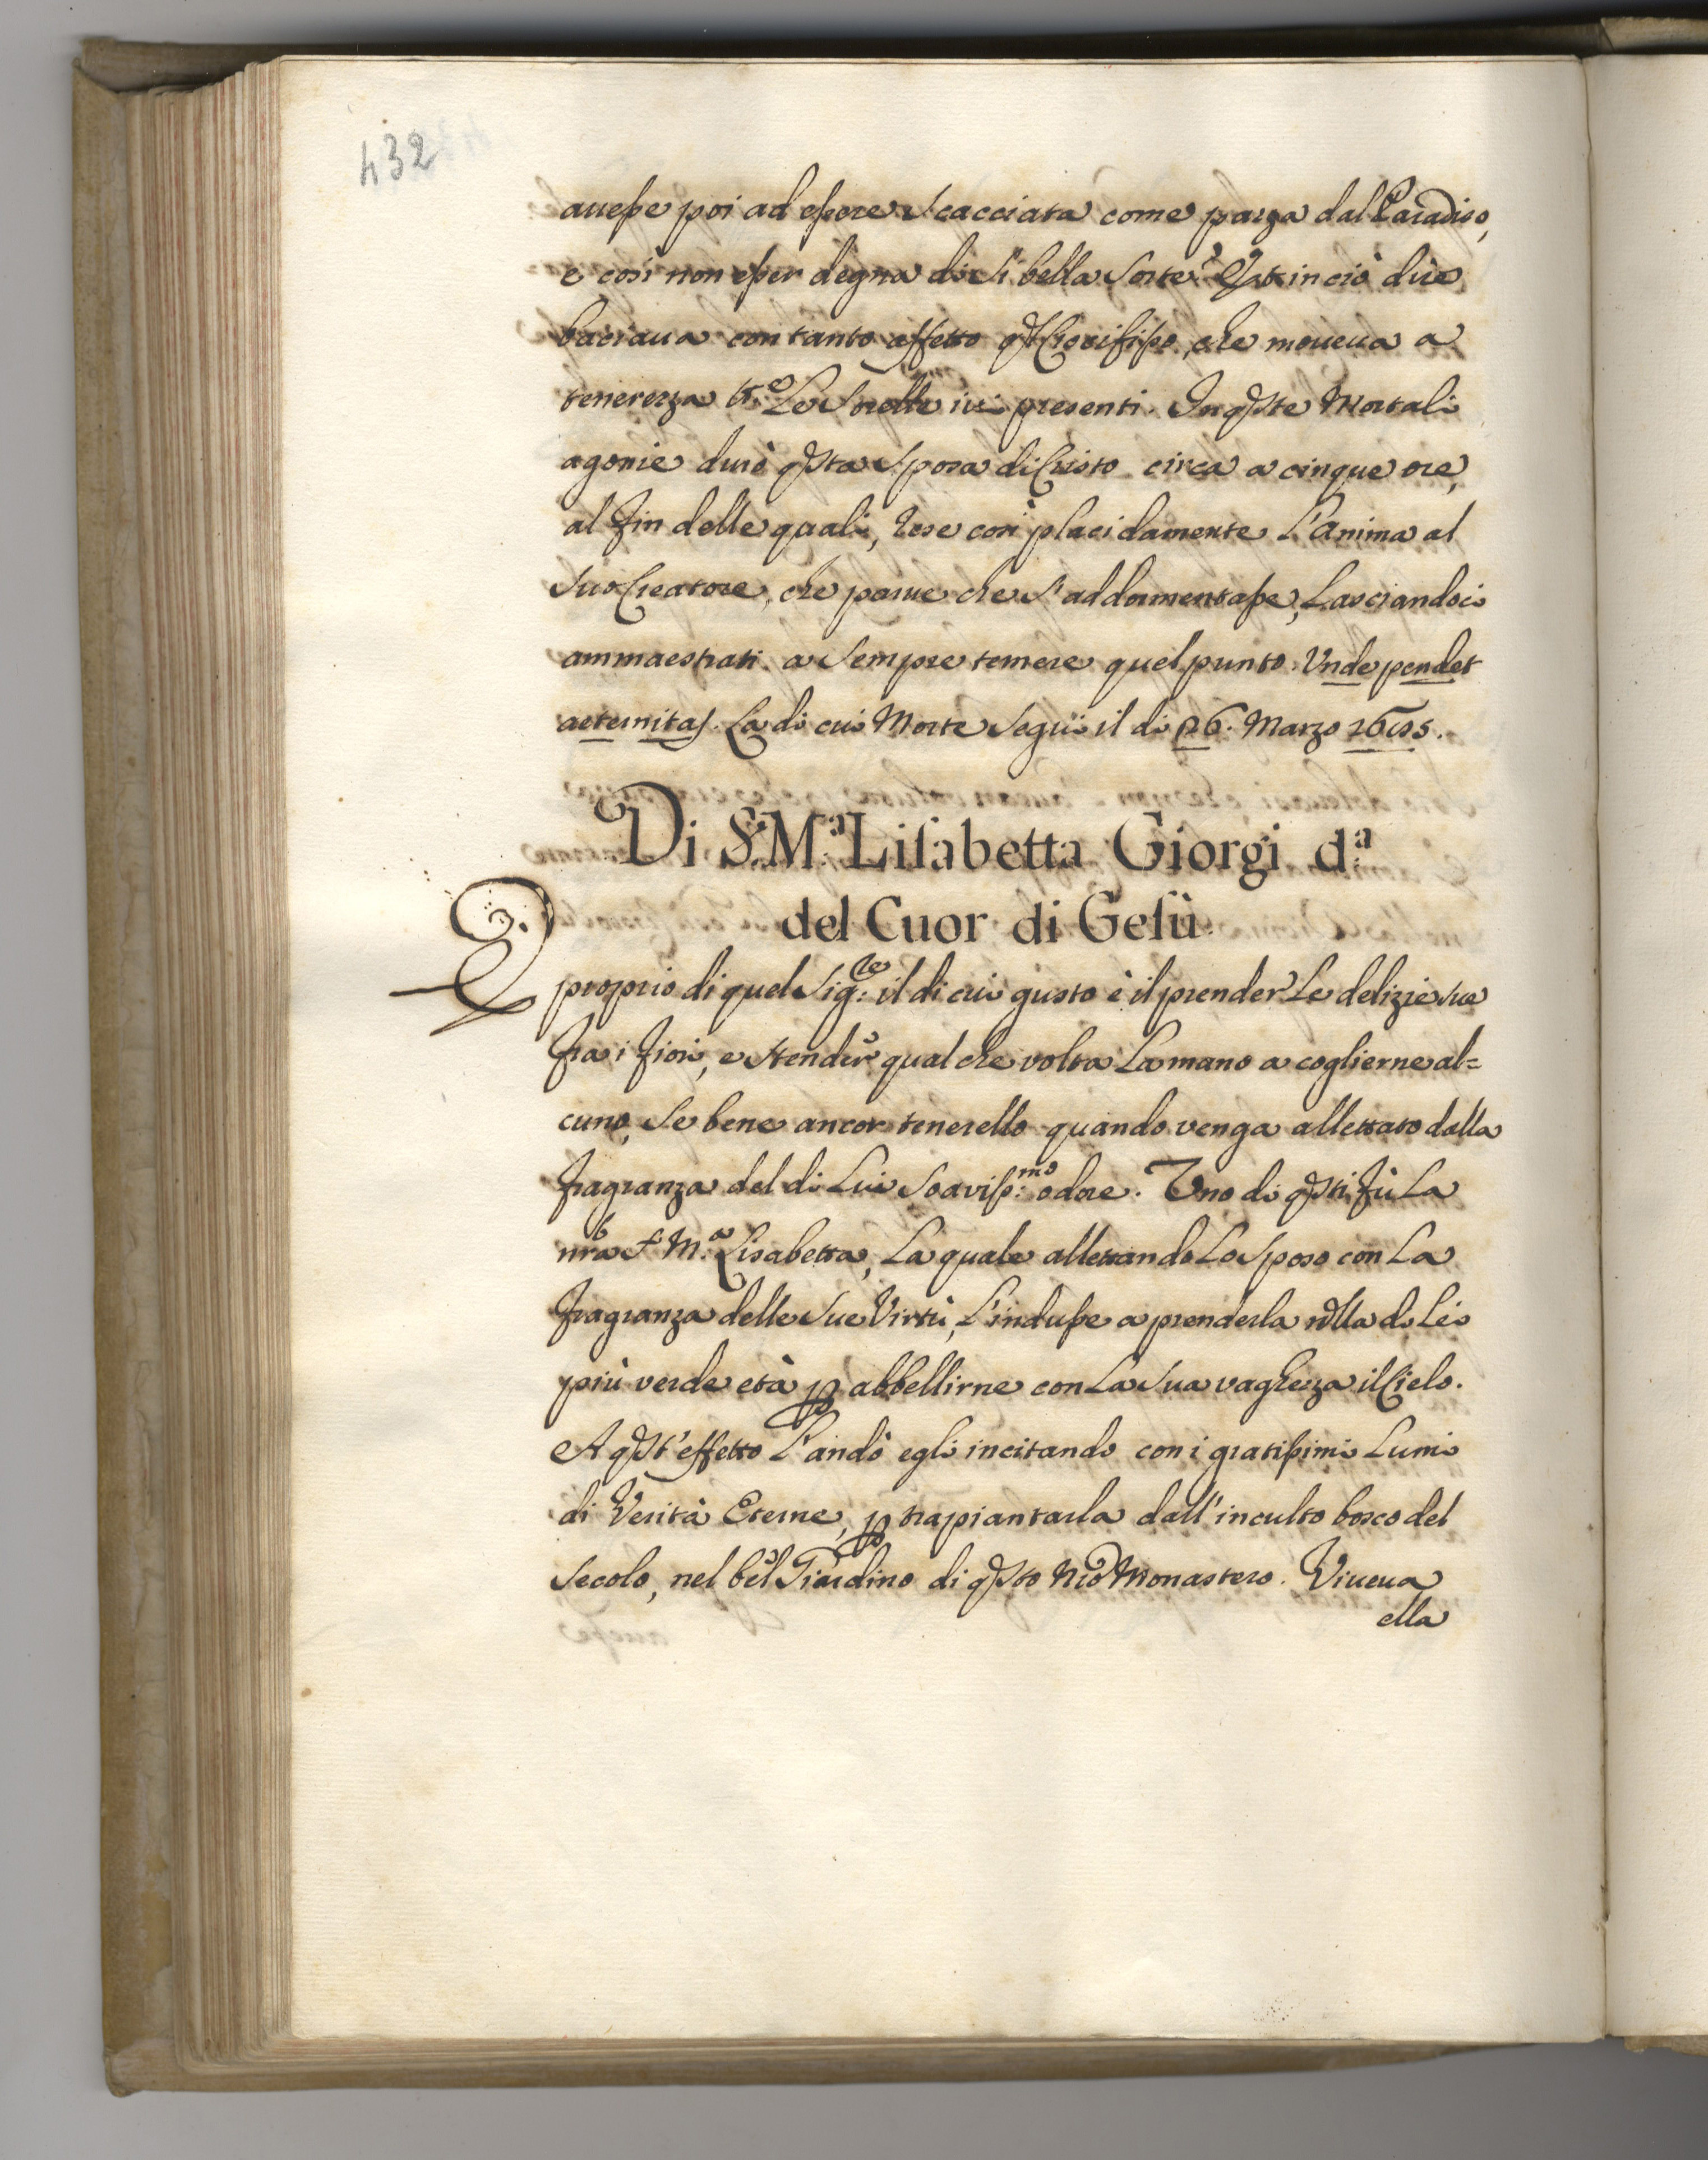 432
auesse poi ad essere scacciata come pazza dal Paradiso,
e così non esser degna di sì bella sorte? Et in ciò dire
baciaua con tanto affetto q.l Crocifisso, che moueua a
tenerezza tt.e Le Sorelle iui presenti. In q.ste Mortali
agonie durò q.sta Sposa di Cristo circa a cinque ore,
al fin delle quali, rese così placidamente L'Anima al
suo Creatore, che parue che s'addormentasse, Lasciandoci
ammaestrati a sempre temere quel punto. Vnde pendet
aeternitas. La di cui Morte seguì il di 26. Marzo
Di S.r M.a Lisabetta Giorgi d.a
del Cuor di Gesù.
È proprio di quel Sig.re il di cui gusto è il prender Le delizie sue
fra i fiori, e stender qual che volta La mano a coglierne al=
cuno, se bene ancor tenerello quando venga allettato dalla
fragranza del di Lui soaviss.mo odore. Uno di q.sti fù La
nra S.r M.a Lisabetta, La quale allettando Lo sposo con La
fragranza delle sue Virtù, L'indusse a prenderla nella di Lei
più verde età p abbellirne con La sua vaghezza il Cielo.
A q.st'effetto L'andò egli incitando con i gratissimi Lumi
di Verità Eterne, p trapiantarla dall'inculto bosco del
secolo, nel bel Giardino di q.sto Nro Monastero. Viueua
ella